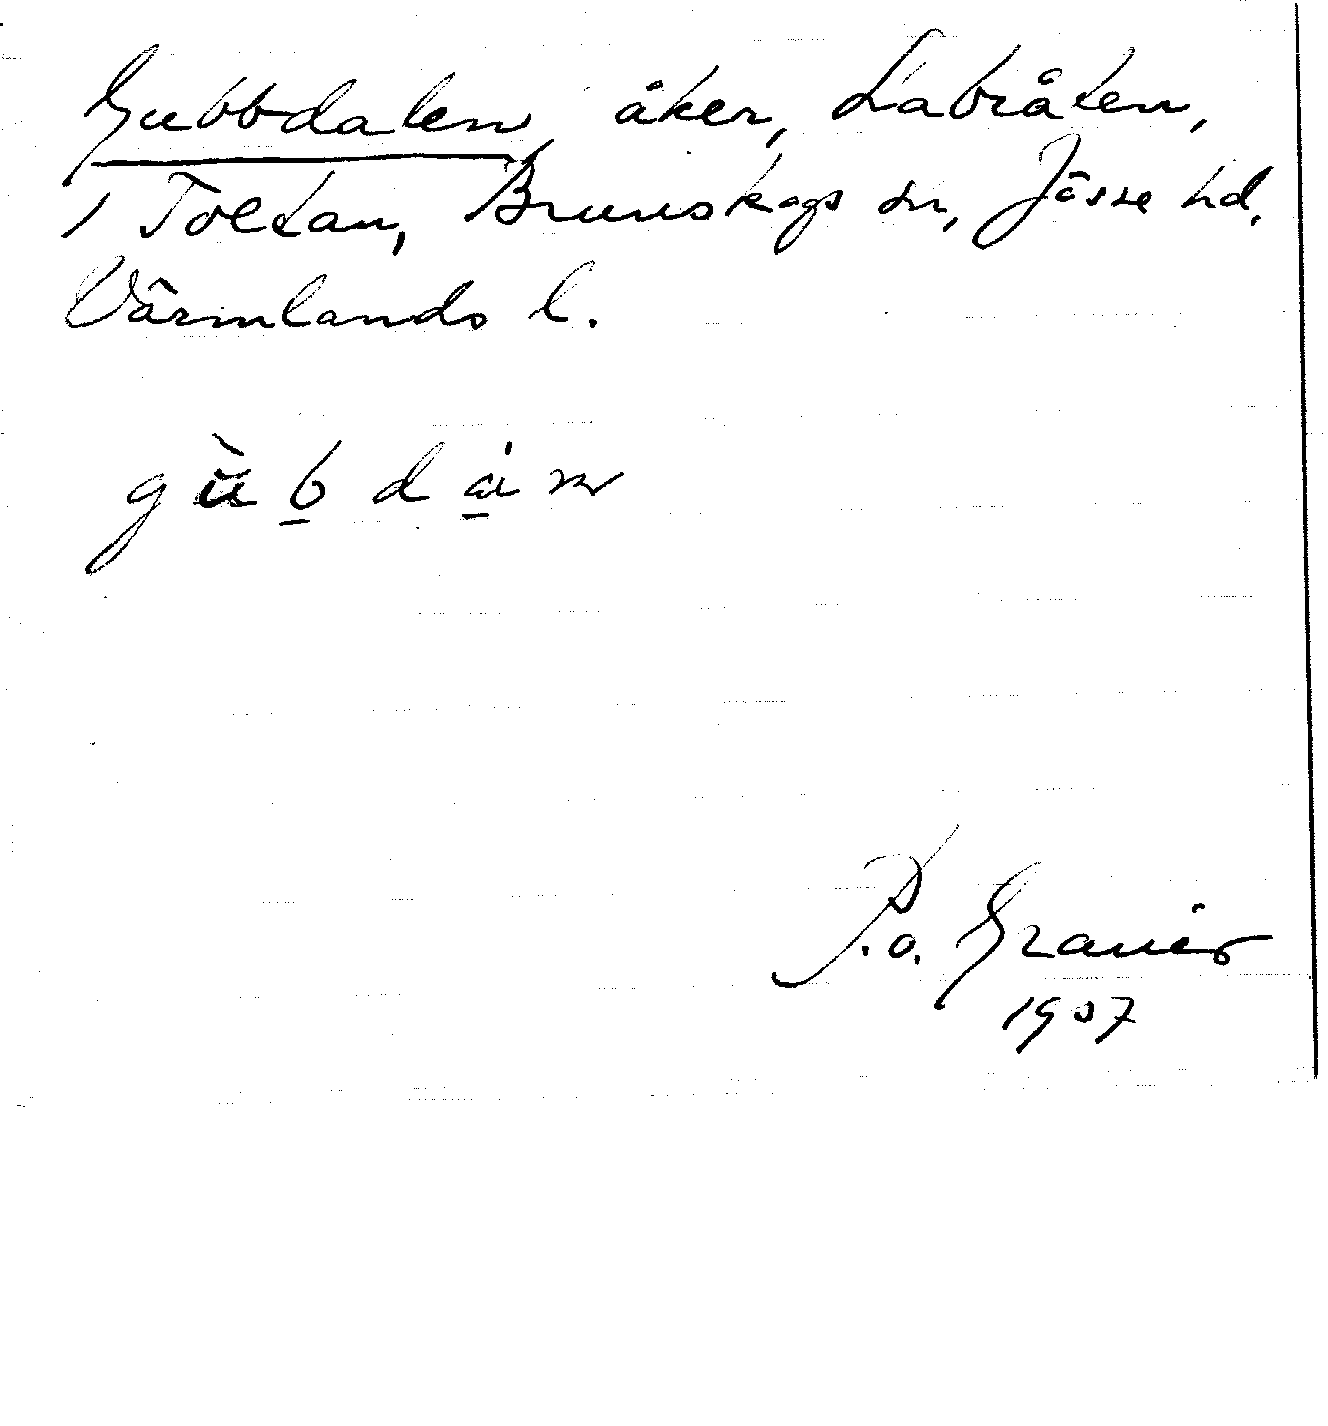 Gubbdalen, åker, Labråten,
1 Toltan, Brunskogs sn, Jösse hd,
Värmlands l.
P.o. Granér
1907